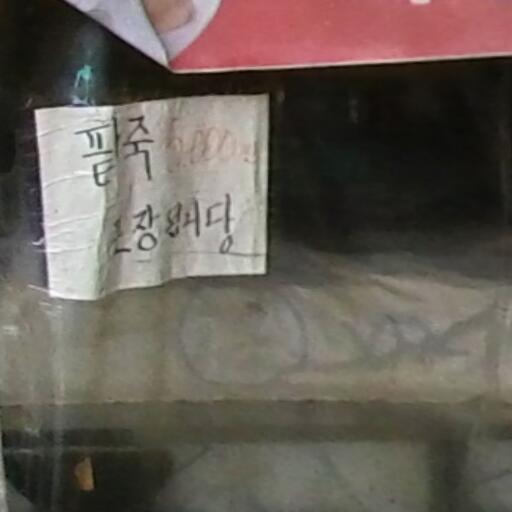 팥죽 5,000원
포장됩니당